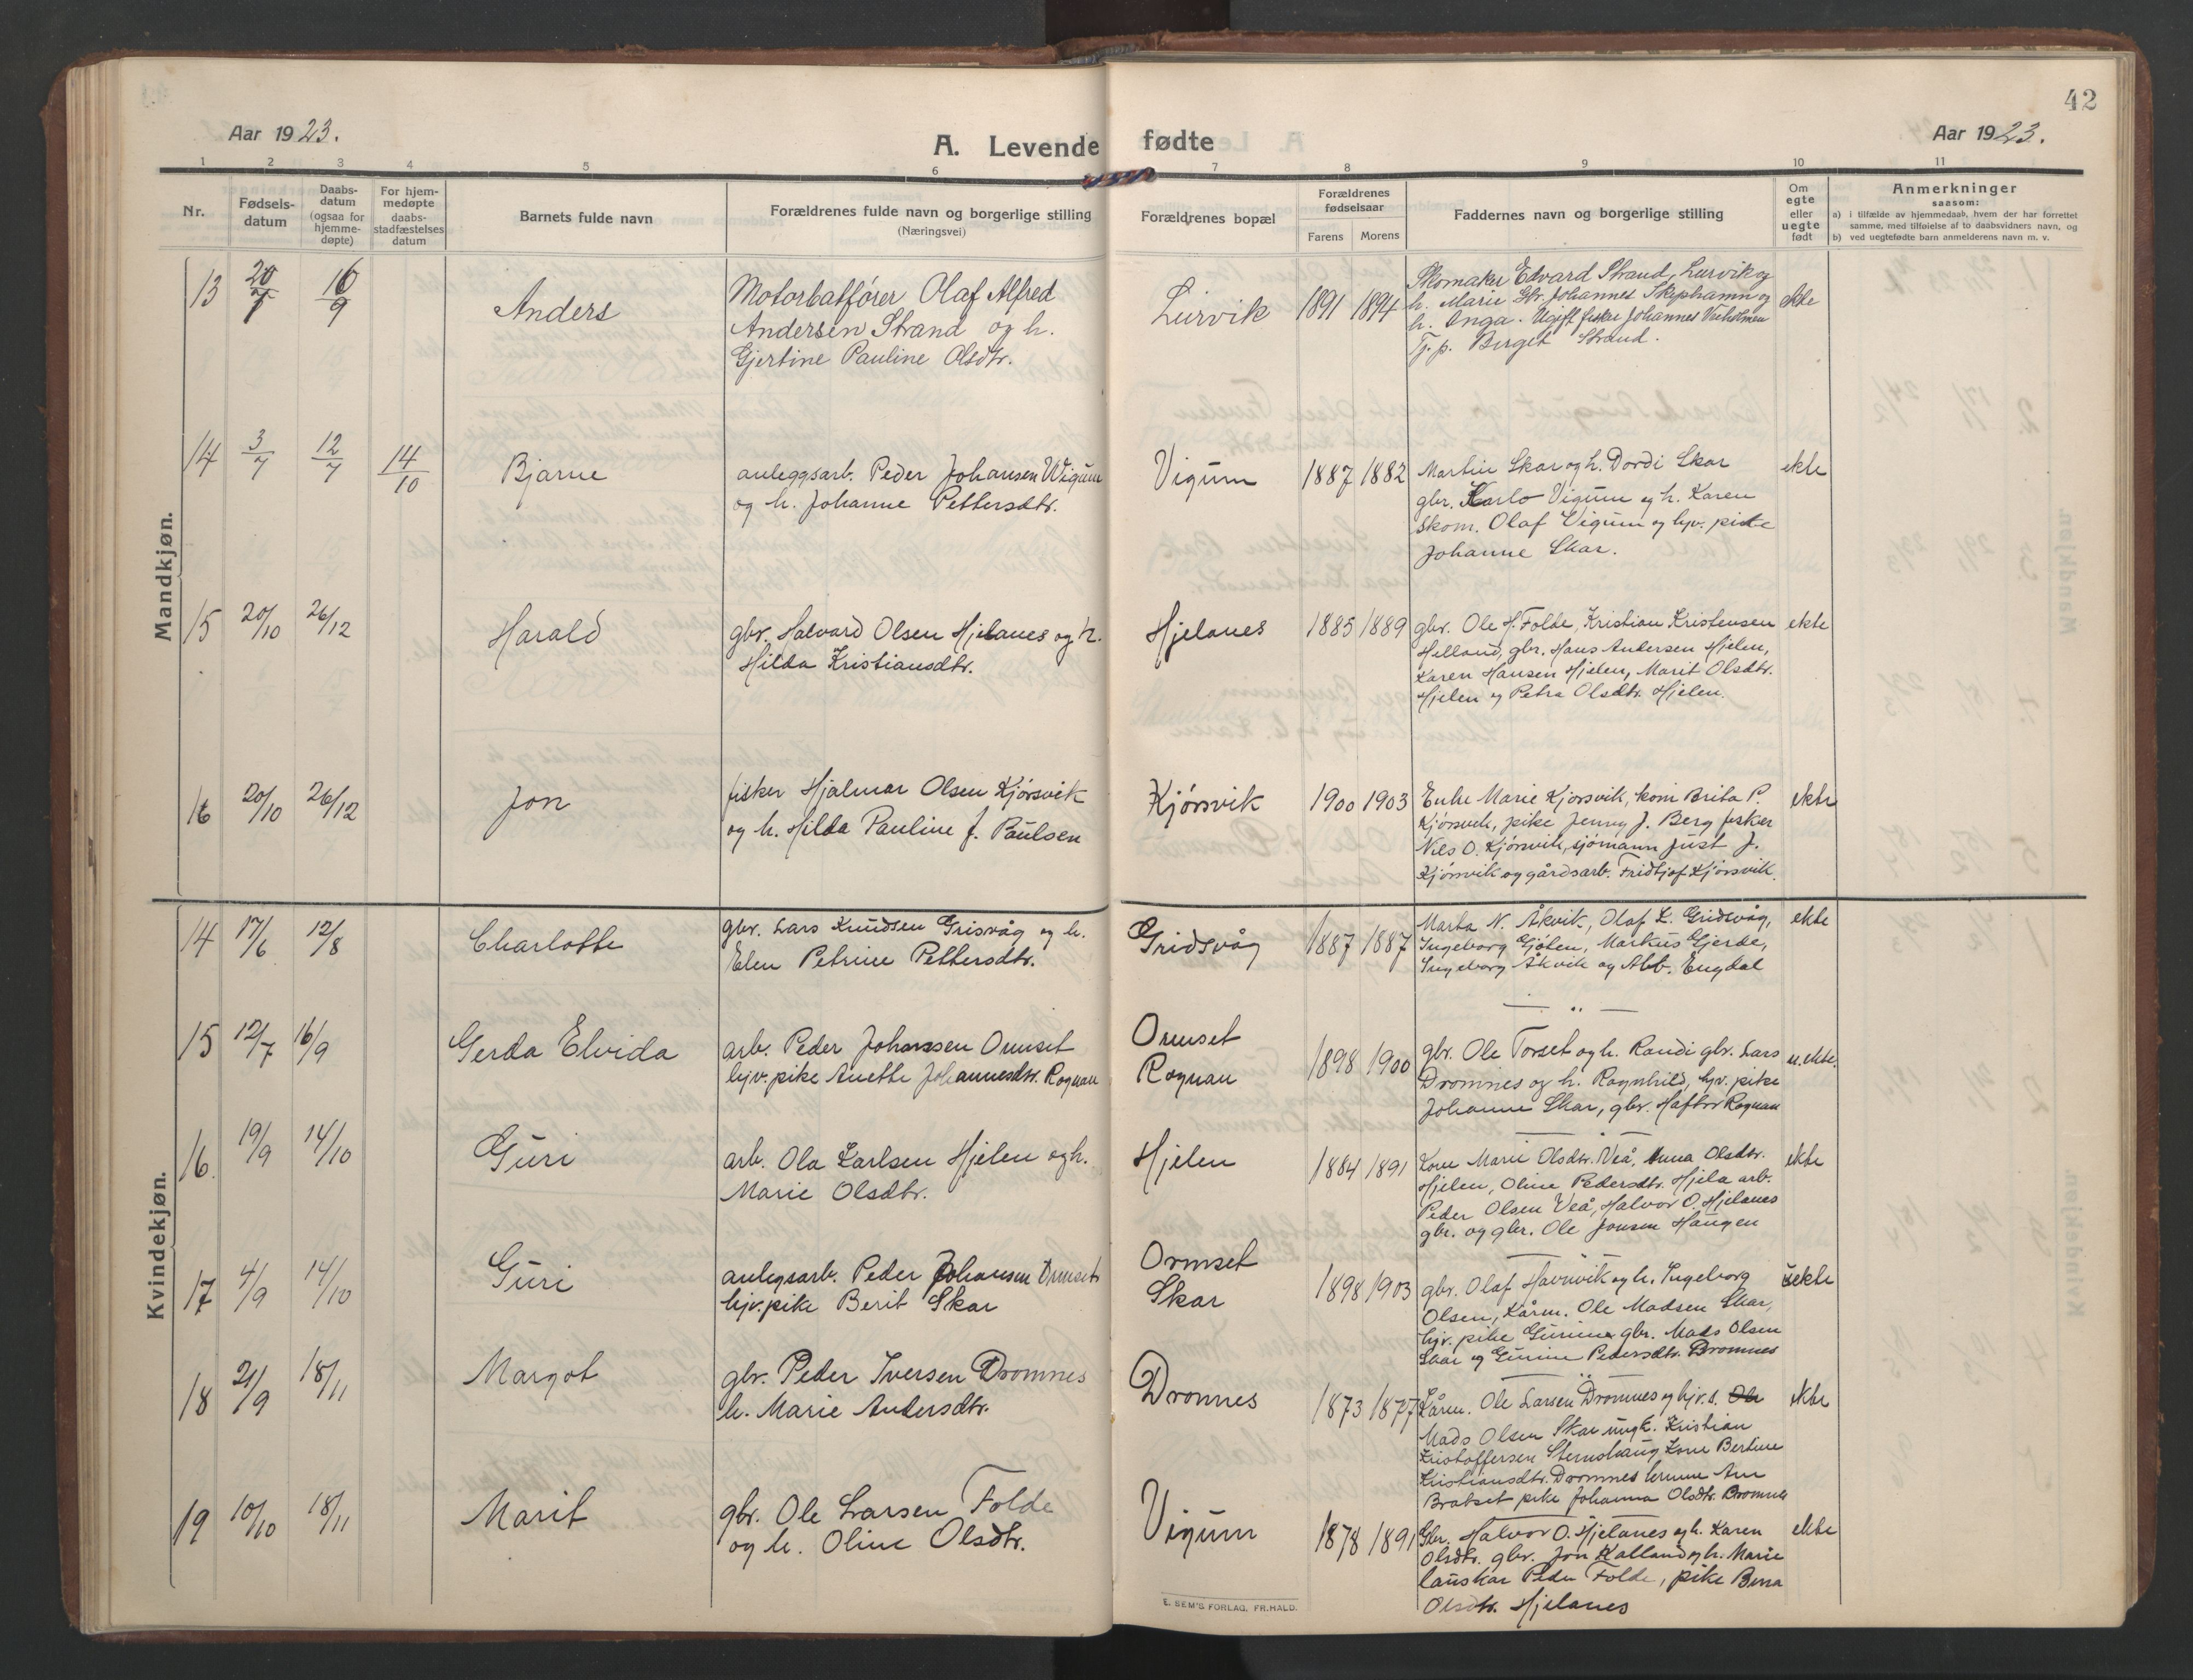 42
Aar 1923.
A. Levende fødte
Aar 1923.
1 2 3 4 5 6 7 8 9 10 11
Nr.
Fødsels-
datum
Daabs-
datum
(ogsaa for
hjemme-
døpte)
For hjem-
medøpte
daabs-
stadfæstelses
datum
Barnets fulde navn
Forældrenes fulde navn og borgerlige stilling
(Næringsvei)
Forældrenes bopæl
Forældrenes
fødselsaar
Farens Morens
Faddernes navn og borgerlige stilling
Om
egte
eller
uegte
født
Anmerkninger
saasom:
a) i tilfælde av hjemmedaab, hvem der har forrettet
samme, med tilføielse af to daabsvidners navn, og
b) ved uegtefødte barn anmelderens navn m. v.
Mandkjøn.
13 20/7 16/9
Anders
Motorbatfører Olaf Alfred
Andersen Strand og h.
Gjertine Pauline Olsdtr.
Lurvik
1891 1894
Skomaker Edvard Strand, Lurvik og
h. Marie Gbr. Johannes Skiphamn og
h. Inga. Ugift fisker Johannes
Tj. p. Berget Strand.
ekte
14 3/7 12/7 14/10
Bjarne
anleggsarb. Peder Johansen Wigum
og h. Johanne Pettersdtr.
Vigum
1887 1882
Martin Skar og h. Dordi Skar
gbr. Karlo Vigum og h. Karen
Skom. Olaf Vigum og hjv. pike
Johanne Skar.
ekte
15 20/10 26/12
Harald
gbr. Halvard Olsen Hjelanes og h.
Hilda Kristiansdtr.
Hjelanes
1885 1889
gbr. Ole H. Folde, Kristian Kristensen
Helland, gbr. Hans Andersen Hjelen,
Karen Hansen Hjelen, Marit Olsdtr.
Hjelen og Petra Olsdtr. Hjelen.
ekte
16 20/10 26/12
Jon
fisker Hjalmar Olsen Kjørsvik
og h. Hilda Pauline J. Paulsen
Kjørsvik
1900 1903
Enke Marie Kjørsvik, kone Brita P.
Kjørsvik, pike Jenny J. Berg fisker
Nils O. Kjørsvik, sjømann Just J.
Kjørsvik og gårdsarb. Fridtjof Kjørsvik.
ekte
Kvindekjøn.
14 17/6 12/8
Charlotte
gbr. Lars Knudsen Grisvåg og h.
Elen Petrine Pettersdtr.
Gridsvåg
1887 1887
Marta N. Åkvik, Olaf L. Gridsvåg,
Ingeborg Gjølen, Markus Gjerde,
Ingeborg Åkvik og Alb. Engdal
ekte
15 12/7 16/9
Gerda Elvida
arb. Peder Johanssen Ormset
hjv. pike Anette Johannesdtr. Rognan
Ormset
Rognan
1898 1900
gbr. Ole Torset og h. Randi gbr. Lars
Dromnes og h. Ragnhild, hjv. pike
Johanne Skar, gbr. Haftor Rognan
u.ekte.
16. 19/9 14/10
Guri
arb. Ola Karlsen Hjelen og h.
Marie Olsdtr.
Hjelen
1884 1891
Kone Marie Olsdtr. Veå, Anna Olsdtr.
Hjelen, Oline Pedersdtr. Hjela arb.
Peder Olsen Veå, Halvor O. Hjelanes
gbr. og gbr. Ole Jonsen Haugen
ekte
17 4/9 14/10
Guri
anlegsarb. Peder Johansen Ormset
hjv. pike Berit Skar
Ormset
Skar
1898 1903
gbr. Olaf Havnvik og h. Ingeborg
Olsen, Kårm. Ole Madsen Skar,
hjv. pike Gurine gbr. Mads Olsen
Skar og Gurine Pedersdtr. Dromnes
uekte
18 21/9 18/11
Margot
gbr. Peder Iversen Dromnes
h. Marie Andersdtr.
Dromnes
1873 1877
Kårm. Ole Larsen Dromnes og hjv. s. Ole
Mads Olsen Skar ungk. Kristian
Kristoffersen Stemshaug Kone Bertine
Kristiansdtr. Dromnes Ane
Brobset pike Johanna Olsdtr. Dromnes
ekte
19 10/10 18/11
Marit
gbr. Ole Larsen Folde
og h. Oline Olsdtr.
Vigum
1878 1891
Gbr. Halvor O. Hjelanes og h. Karen
Olsdtr. gbr. Jon Kalland og h. Marie
lauskar Peder Folde, pike Berra
Olsdtr. Hjelanes
ekte
E. SEM'S FORLAG, FR.HALD.